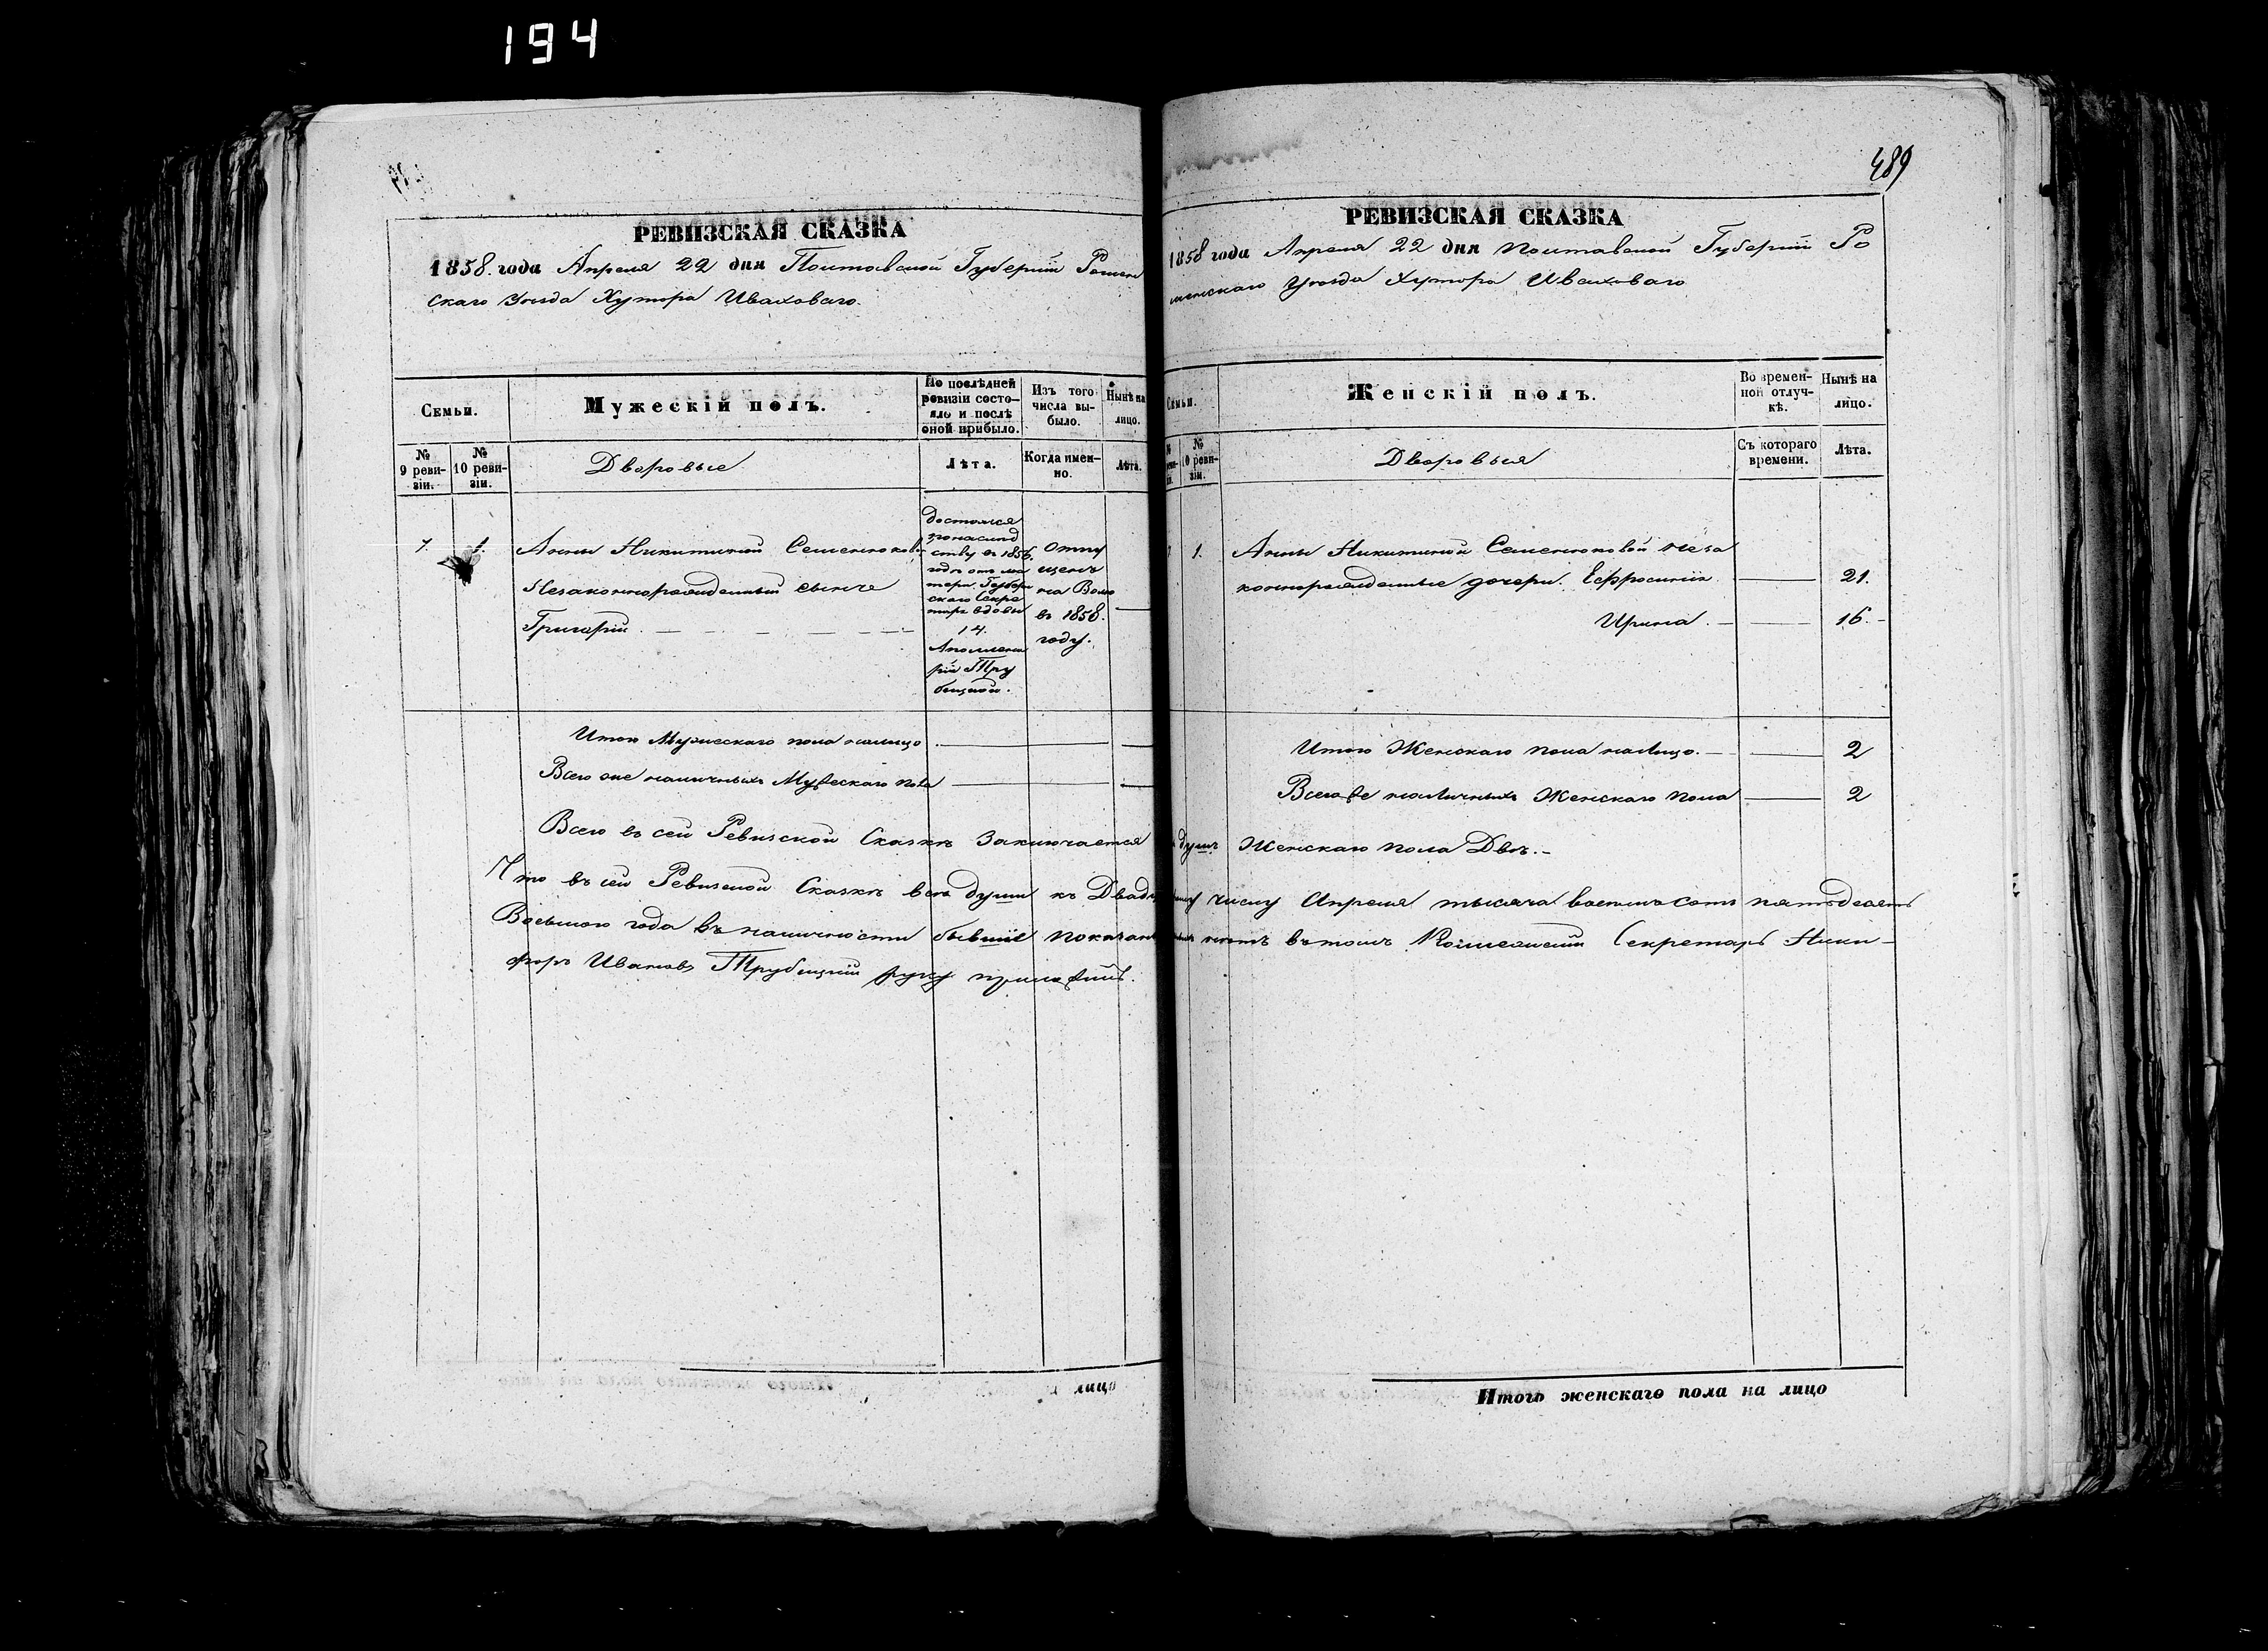 194
489
РЕВИЗСКАЯ СКАЗКА
1858 года Апреля 22 дня Полтавской Губерніи Ромен
скаго Уѣзда Хутора Иваховаго.
Семьи.
Мужескій полъ.
По послѣдней
ревизіи состо-
яло и послѣ
оной прибыло.
Изъ того
числа вы-
было.
Нынѣ на
лицо.
№
9 реви-
зіи.
№
10 реви-
зіи.
Дворовые
Лѣта.
Когда имен-
но.
Лѣта.
1. 1.
Анны Никитиной Семенюков.
Незаконнорожденный сынъ
Григорій
достался
по наслѣд
ству въ 1856
годѣ отъ ма
тери Губерн
скаго Секре
таря вдовы
14.
Аполлена
ріи Тру
бицкой.
Отпу
щенъ
на Волю
въ 1858.
году.
Итого Мужескаго пола налицо
Всего же наличныхъ Мужескаго пола
РЕВИЗСКАЯ СКАЗКА
1858 года Апреля 22 дня Полтавской Губерніи Ро
менскаго Уѣзда Хутора Иваховаго
Семьи.
Женскій полъ.
Во времен-
ной отлуч-
кѣ.
Нынѣ на
лицо.
№
№
10 реви-
зіи.
Дворовыя
Съ котораго
времени.
Лѣта.
1.
Анны Никитиной Семенюковой неза
коннорожденные дочери. Ефросинія 21.
Ирина 16.
Итого Женскаго пола налицо. 2
Всего же наличныхъ Женскаго пола 2
Всего въ сей Ревизской Сказкѣ Заключается душъ Женскаго пола Двѣ.
Что въ сей Ревизской Сказкѣ всѣ души къ числу Апреля тысяча восемь сотъ пятьдесятъ
Восьмого года въ наличности бывшіе нѣтъ въ томъ Коллежскій Секретарь Ники-
форъ Ивановъ Трубицкій руку приложилъ.
лицо
Итого женскаго пола на лицо